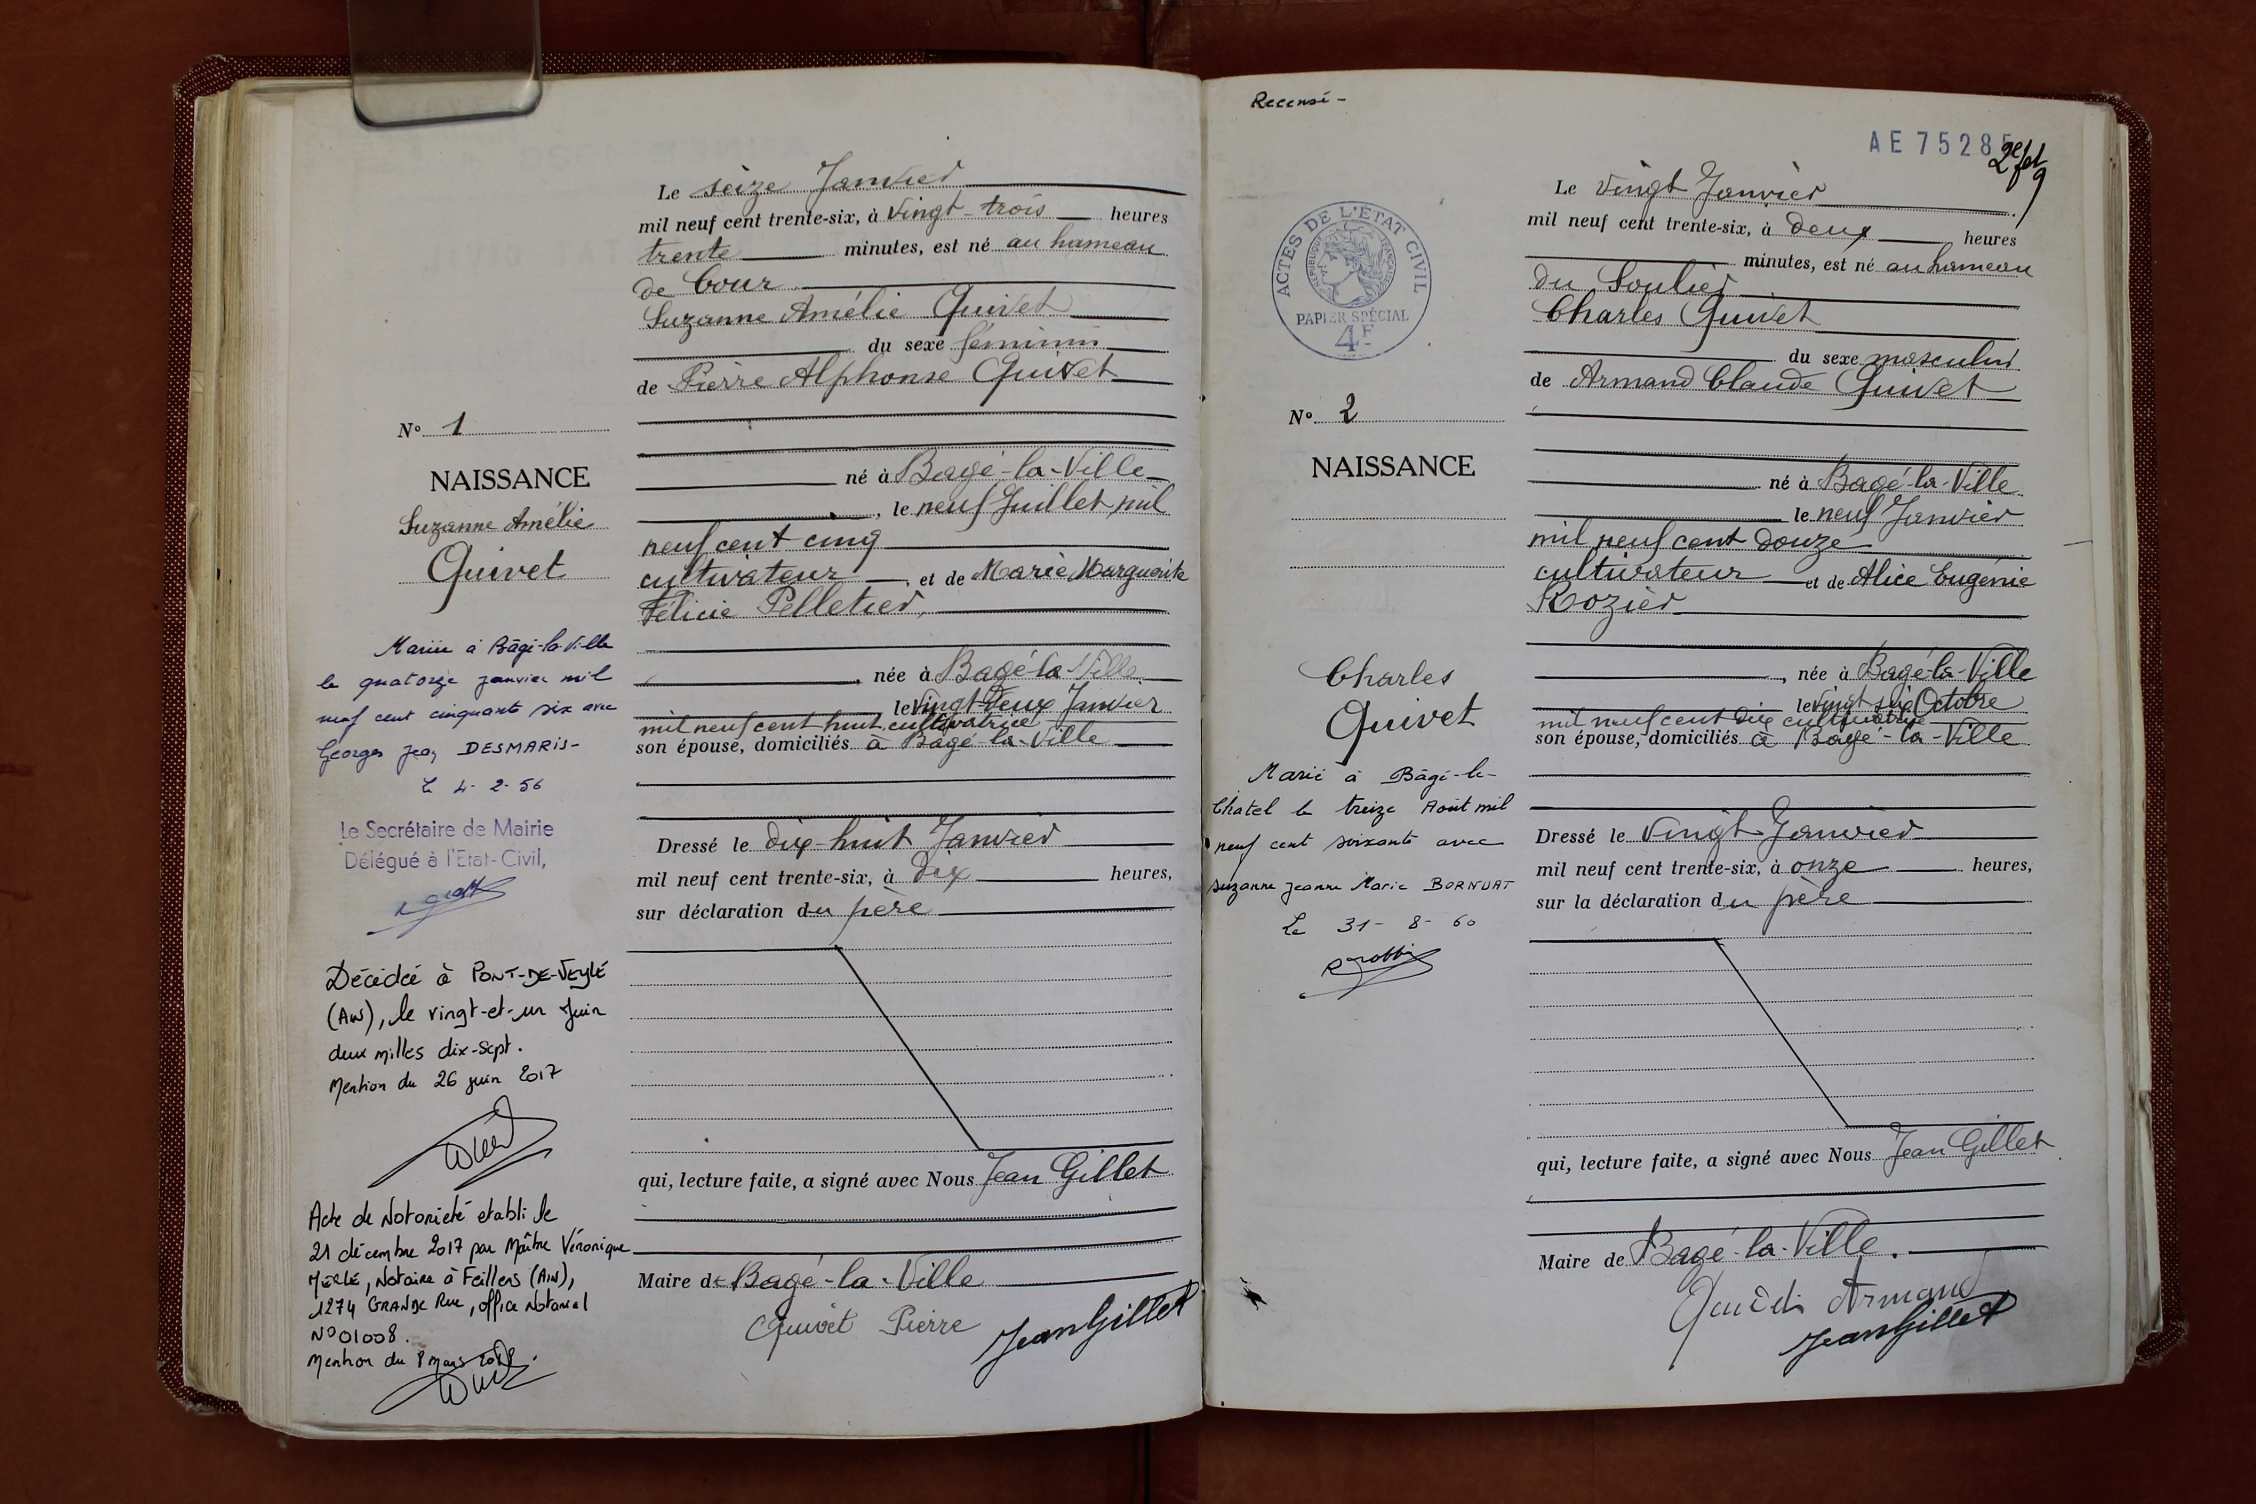 Le seize Janvier
mil neuf cent trente-six, à Vingt-trois heures
trente minutes, est né au hameau
de Cour
Suzanne Amélie Quivet
du sexe féminin
de Pierre Alphonse Quivet
N° 1
NAISSANCE
Suzanne Amélie
Quivet
né à Bagé-la-Ville
, le neuf Juillet mil
neuf cent cinq
cultivateur , et de Marie Marguerite
Félicie Pelletier,
née à Bagé-la-Ville
le Vingt Deux Janvier
mil neuf cent huit, cultivatrice
son épouse, domiciliés à Bagé-la-Ville
Dressé le dix-huit Janvier
mil neuf cent trente-six, à Dix heures,
sur déclaration du père
qui, lecture faite, a signé avec Nous Jean Gillet
Maire de Bagé-la-Ville
Quivet Pierre
Jean Gillet
Mariée à Bâgé-la-Ville
le quatorze janvier mil
neuf cent cinquante six avec
Georges Jean DESMARIS-
Le 4-2-56
Le Secrétaire de Mairie
Délégué à l'Etat-Civil,
Décédée à PONT-DE-VEYLE
(AIN), le vingt-et-un Juin
deux milles dix-sept.
Mention du 26 juin 2017
Acte de Notoriété etabli le
21 décembre 2017 par Maître Véronique
MERLE, Notaire à Feillens (AIN),
1274 GRANDE Rue, office Notarial
N°01008.
Mention du 8 mars 2018.
Recensé-
AE 75285
2e fet
9
ACTES DE L'ÉTAT CIVIL
RÉPUBLIQUE FRANÇAISE
PAPIER SPÉCIAL
4F
Le Vingt Janvier
mil neuf cent trente-six, à Deux heures
minutes, est né au hameau
du Soulier
Charles Quivet
du sexe masculin
de Armand Claude Quivet
N° 2
NAISSANCE
né à Bagé-la-Ville
le neuf Janvier
mil neuf cent douze
cultivateur et de Alice Eugénie
Rozier
, née à Bagé-la-Ville
le Vingt six Octobre
mil neuf cent dix cultivatrice
son épouse, domiciliés à Bagé-la-Ville
Dressé le Vingt Janvier
mil neuf cent trente-six, à onze heures,
sur la déclaration du père
qui, lecture faite, a signé avec Nous Jean Gillet
Maire de Bagé-la-Ville.
Quivet Armand
Jean Gillet
Charles
Quivet
Marié à Bâgé-le-
Chatel le treize Août mil
neuf cent soixante avec
Suzanne Jeanne Marie BORNUAT
Le 31-8-60